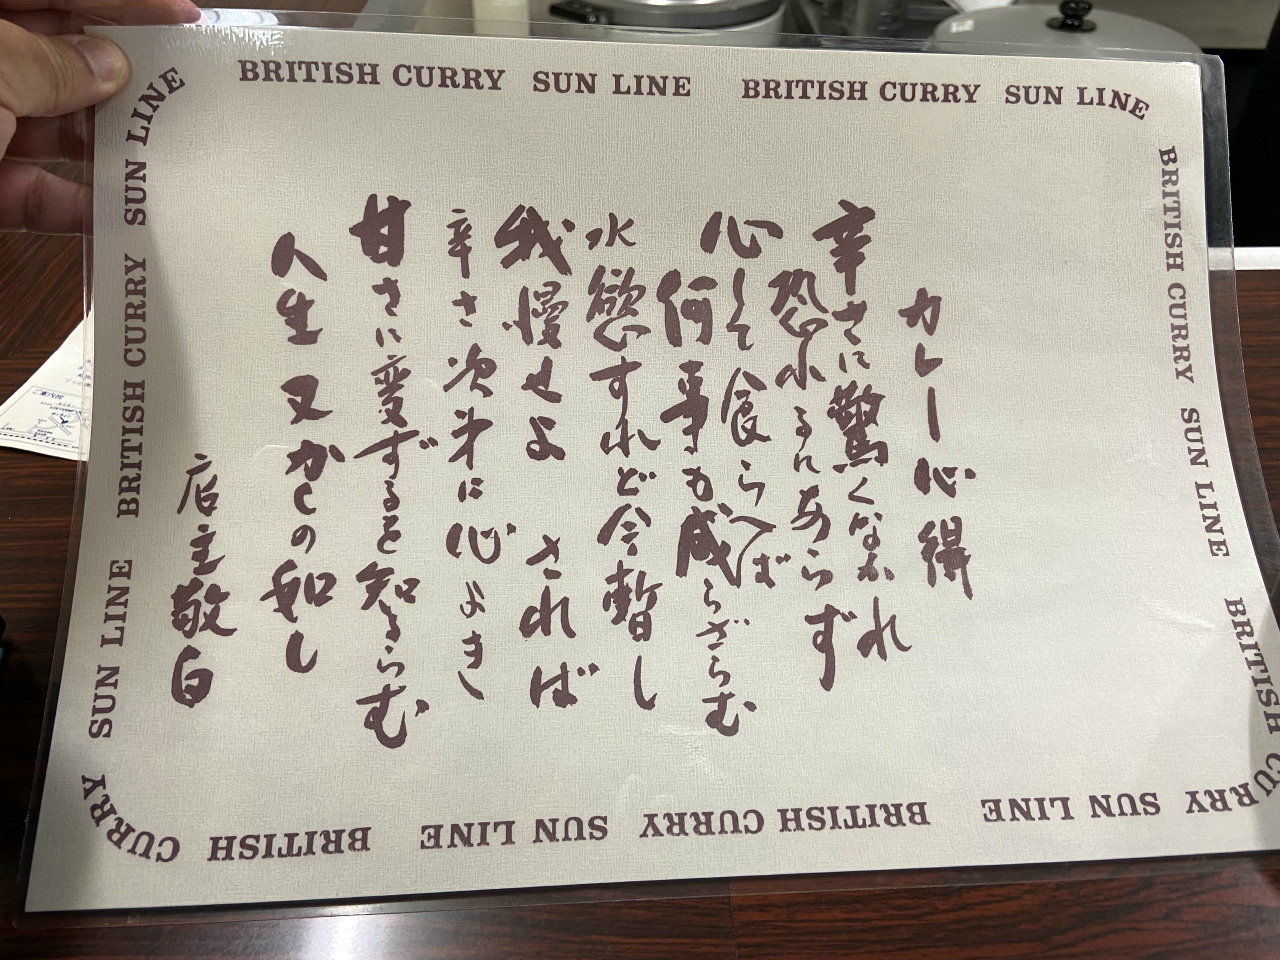 BRITISH CURRY SUN LINE BRITISH CURRY SUN LINE
BRITISH CURRY SUN LINE BRITISH CURRY
SUN LINE BRITISH CURRY SUN LINE BRITISH CURRY
SUN LINE BRITISH CURRY SUN LINE
カレー心得
辛さに驚くなかれ
恐れるにあらず
心して食らへば
何事も成らざらむ
水慾すれど今暫し
我慢せよ されば
辛さ次第に心よきし
甘さに変ずると知るらむ
人生又かくの如し
店主敬白